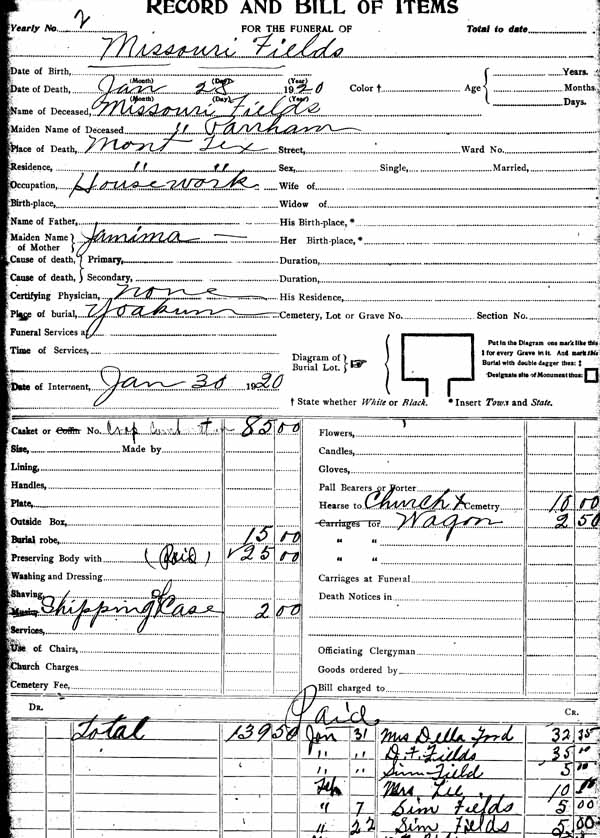 RECORD AND BILL OF ITEMS
Yearly No. 2 FOR THE FUNERAL OF Total to date
Missouri Fields
Date of Birth, (Month) (Day) (Year) Years.
Date of Death, Jan 28 1920 Color † Age Months.
(Month) (Day) (Year) Days.
Name of Deceased, Missouri Fields
Maiden Name of Deceased " Parrham
Place of Death, Mont Tex Street, Ward No.
Residence, " " Sex, Single, Married,
Occupation, Housework Wife of
Birth-place, Widow of
Name of Father, His Birth-place, *
Maiden Name of Mother Jamima — Her Birth-place, *
Cause of death, Primary, Duration,
Cause of death, Secondary, Duration,
Certifying Physician, none His Residence,
Place of burial, Yoakum Cemetery, Lot or Grave No. Section No.
Funeral Services at
Time of Services,
Diagram of Burial Lot. ☞
Put in the Diagram one mark like this
‡ for every Grave in it. And mark this
Burial with double dagger thus: ‡
Designate site of Monument thus: □
Date of Interment, Jan 30 1920
† State whether White or Black. * Insert Town and State.
Casket or Coffin No. 85 00
Size, Made by
Lining,
Handles,
Plate,
Outside Box,
Burial robe, 15 00
Preserving Body with (Paid) ✓25 00
Washing and Dressing
Shaving,
Music, Shipping Case 2 00
Services,
Use of Chairs,
Church Charges
Cemetery Fee,
Flowers,
Candles,
Gloves,
Pall Bearers or Porter
Hearse to Church & Cemetry 10 00
Carriages for Wagon 2 50
" "
" "
Carriages at Funeral
Death Notices in
Officiating Clergyman
Goods ordered by
Bill charged to
DR. Paid CR.
Total 139 50 Jan 31 Mrs Della Ford 32
" " D. F. Fields 35 00
" " Sim Field 5 00
Feb Mrs Lee 10
" 7 Sim Fields 5 00
" 22 Sim Fields 5 00